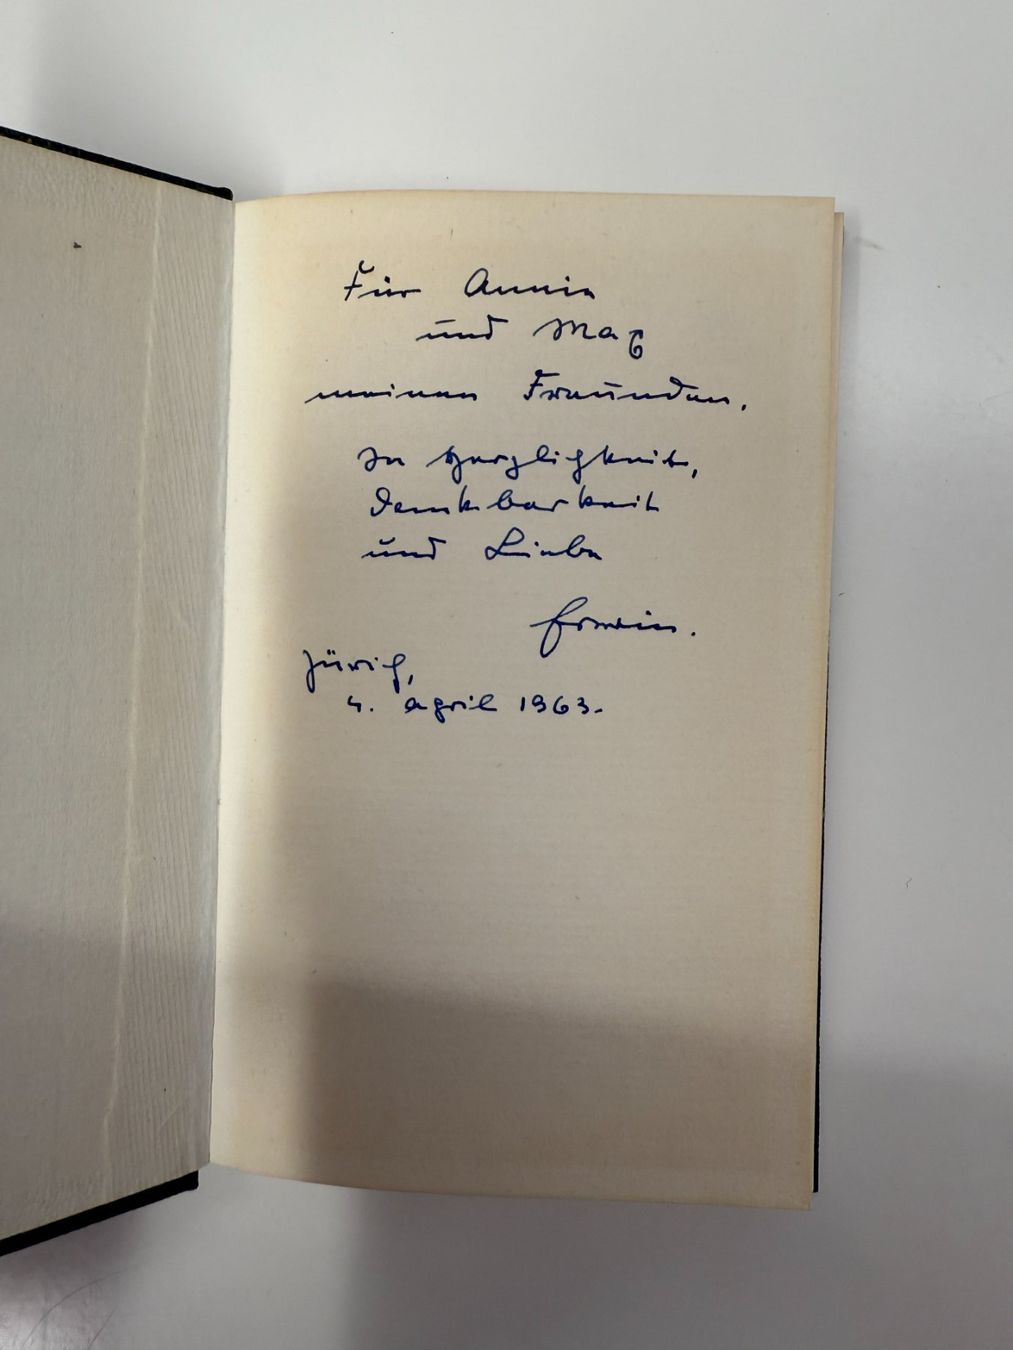 Für Annie
und Max
meinen Freunden.
In Herzlichkeit,
Dankbarkeit
und Liebe
Erwin.
Zürich,
4. April 1963.